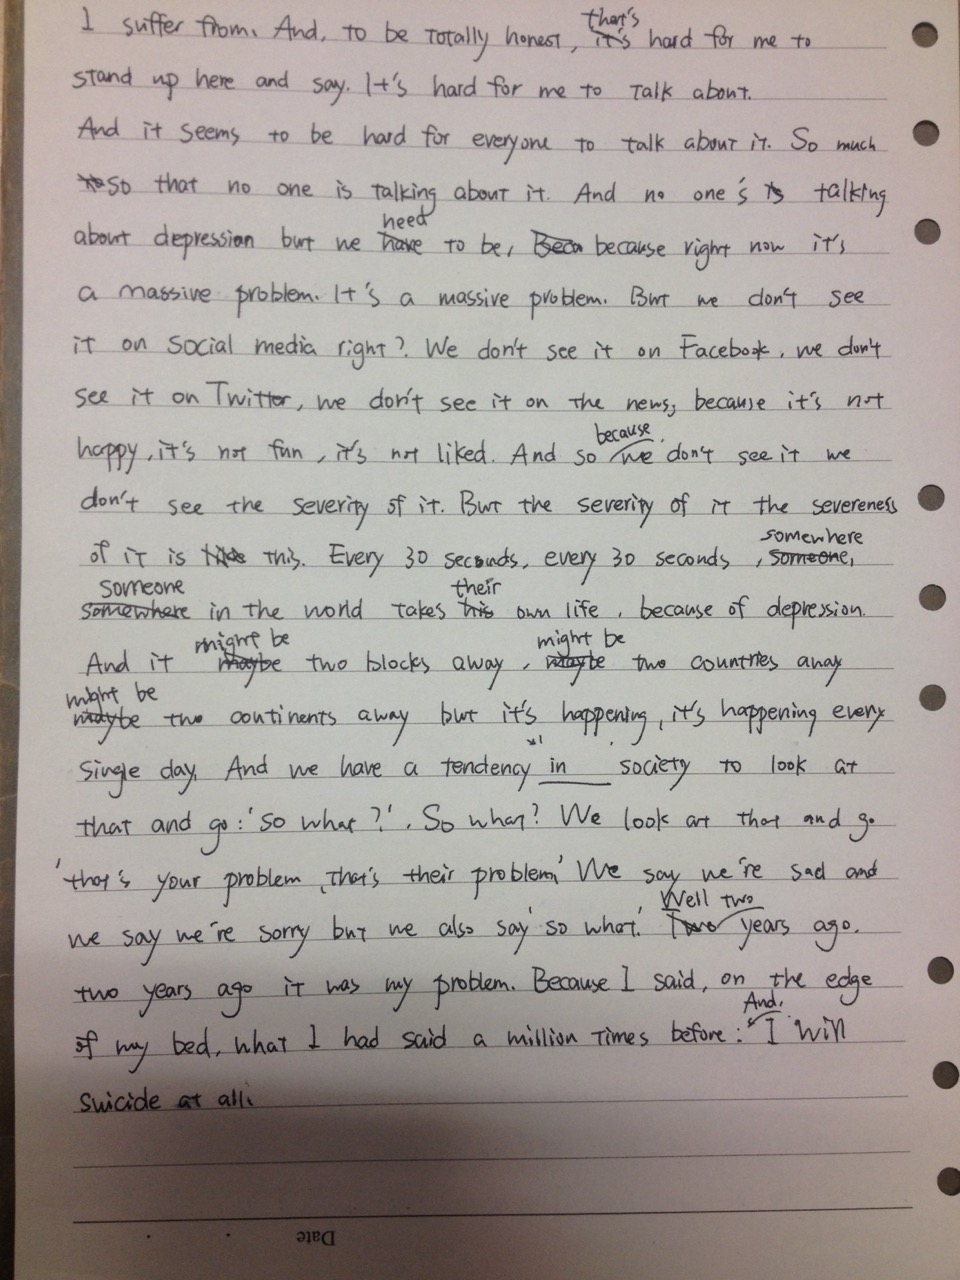 I suffer from. And, to be totally honest, that's hard for me to
stand up here and say. It's hard for me to talk about.
And it seems to be hard for everyone to talk about it. So much
so that no one is talking about it. And no one's talking
about depression but we need to be, because right now it's
a massive problem. It's a massive problem. But we don't see
it on social media right? We don't see it on Facebook, we don't
see it on Twitter, we don't see it on the news, because it's not
happy, it's not fun, it's not liked. And so because we don't see it we
don't see the severity of it. But the severity of it the severeness
of it is this. Every 30 seconds, every 30 seconds, somewhere
someone in the world takes their own life, because of depression.
And it might be two blocks away, might be two countries away
might be two continents away but it's happening, it's happening every
single day. And we have a tendency in society to look at
that and go: 'So what?'. So what? We look at that and go
'that's your problem, that's their problem' We say we're sad and
we say we're sorry but we also say 'so what.' Well two years ago.
two years ago it was my problem. Because I said, on the edge
of my bed, what I had said a million times before: And. I will
suicide at all.
Date